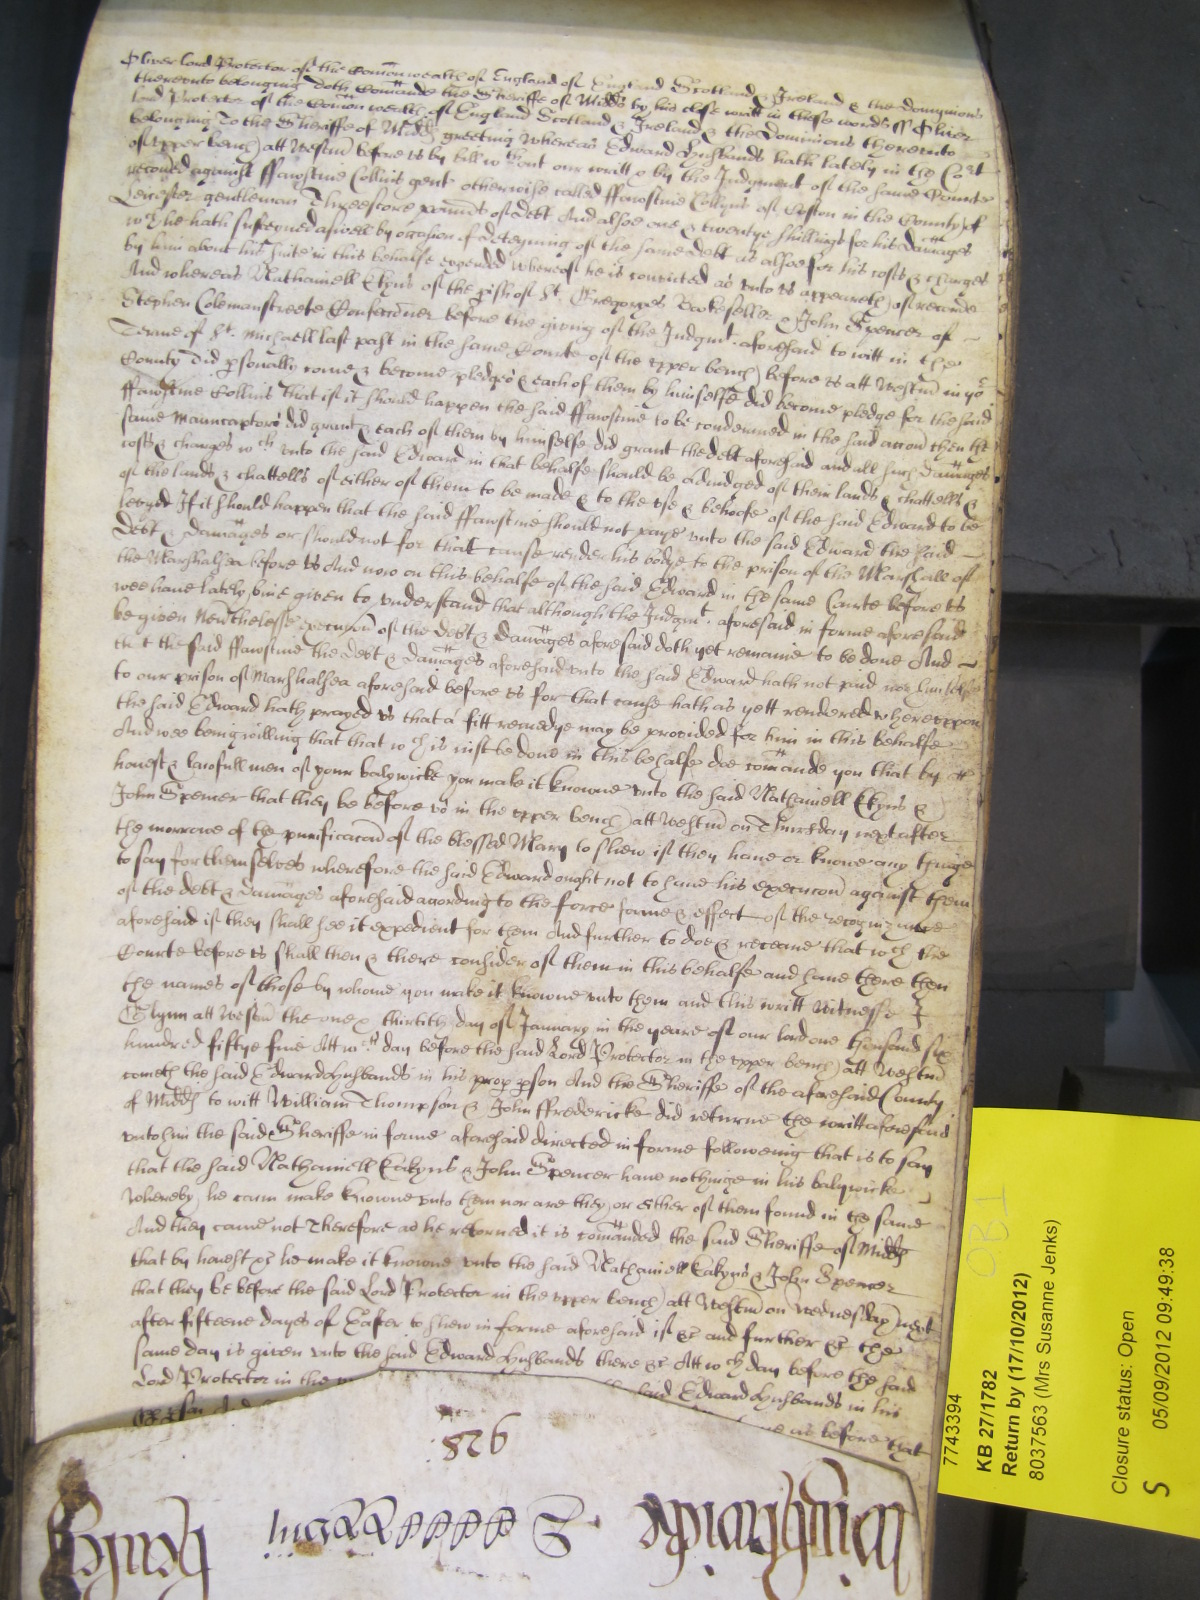 Oliver lord Protector of the Comonwealth of England of England Scotland & Ireland & the dominions
thereunto belonging doth Comande the Sheriffe of Midds by his close writt in these words ss Oliver
lord Protector of the Comon wealth of England Scotland & Ireland & the Dominions thereunto
belonging To the Sheriffe of Midds greeting Whereas Edward Husbands hath lately in the Cort
of upper bench att Westm before us by bill wthout our writt & by the Judgment of the same Courte
recoued against ffaustine Collins gent otherwise called ffaustine Collyns of in the County of
Leicester gentleman Threescore pounds of debt And alsoe one & twentye shillings for his damages
wch he hath susteyned aswell by occasion of deteyning of the same debt as alsoe for his costs & charges
by him about his suite in this behalfe expended whereof he is convicted as unto us appeareth of recorde
And whereas Nathaniell Ekyns of the pish of St Gregoryes Bookeseller & John Spencer of
Stephen Colemanstreete Confecconer before the giving of the Judgmt aforesaid to witt in the
Terme of St Michaell last past in the same Courte of the upper bench before us att Westm in yor
County did psonally come & become pledges & each of them by himselfe did become pledge for the said
ffaustine Collins that if it should happen the said ffaustine to be condemned in the said accon then the
same Mainecaptors did grant & each of them by himselfe did grant the debt aforesaid and all such damages
costs & charges wch unto the said Edward in that behalfe should be adiudged of their lands & chattells &
of the lands & chattells of either of them to be made & to the use & behoofe of the said Edward to be
levyed If it should happen that the said ffaustine should not paye unto the said Edward the said
debt & damages or should not for that cause render his bodye to the prison of the Marshall of
the Marshalsea before us And now on this behalfe of the said Edward in the same Courte before us
wee have lately bine given to understand that although the Judgmt aforesaid in forme aforesaid
be given Nevthelesse execucon of the debt & damages aforesaid doth yet remaine to be done And
that the said ffaustine the debt & damages aforesaid unto the said Edward hath not paid nor himselfe
to our prison of Marshalsea aforesaid before us for that cause hath as yett rendered whereuppon
the said Edward hath prayed us that a fitt remedye may be provided for him in this behalfe
And wee being willing that that wch is iust be done in this behalfe doe comande you that by
honest & lawfull men of your balywicke you make it knowne unto the said Nathaniell Ekyns &
John Spencer that they be before us in the upper bench att Westm on Thursday next after
the morrowe of the purificacon of the blessed Mary to shew if they have or knowe any thinge
to say for themselves wherefore the said Edward ought not to have his execucon against them
of the debt & damages aforesaid acording to the force forme & effect of the recognizance
aforesaid if they shall see it expedient for them And further to doe & receave that wch the
Courte before us shall then & there consider of them in this behalfe and have there then
the names of those by whome you make it knowne unto them and this writt Witnesse J
Glynn att Westm the one & thirtith day of January in the yeare of our lord one thousand six
hundred fiftye five Att wch day before the said Lord Protector in the upper bench att Westm
cometh the said Edward Husbands in his prop pson And the Sheriffe of the aforesaid County
of Midds to witt William Thompson & John ffredericke did returne the writt aforesaid
unto him the said Sheriffe in forme aforesaid directed in forme followeing that is to say
that the said Nathaniell Eakyns & John Spencer have nothinge in his balywicke
whereby he cann make knowne unto them nor are they or either of them found in the same
And they came not Therefore as he retorned it is comanded the said Sheriffe of Midds
that by honest &c he make it knowne unto the said Nathaniell Eakyns & John Spencer
that they be before the said Lord Protector in the upper bench att Westm on Wednesday next
after fifteene dayes of Easter to shew in forme aforesaid if &c and further &c the
same day is given unto the said Edward Husbands there &c Att wch day before the said
Lord Protector in the said Edward Husbands in his
pson as before that
928
7743394
KB 27/1782
Return by (17/10/2012)
8037563 (Mrs Susanne Jenks)
Closure status: Open
S 05/09/2012 09:49:38